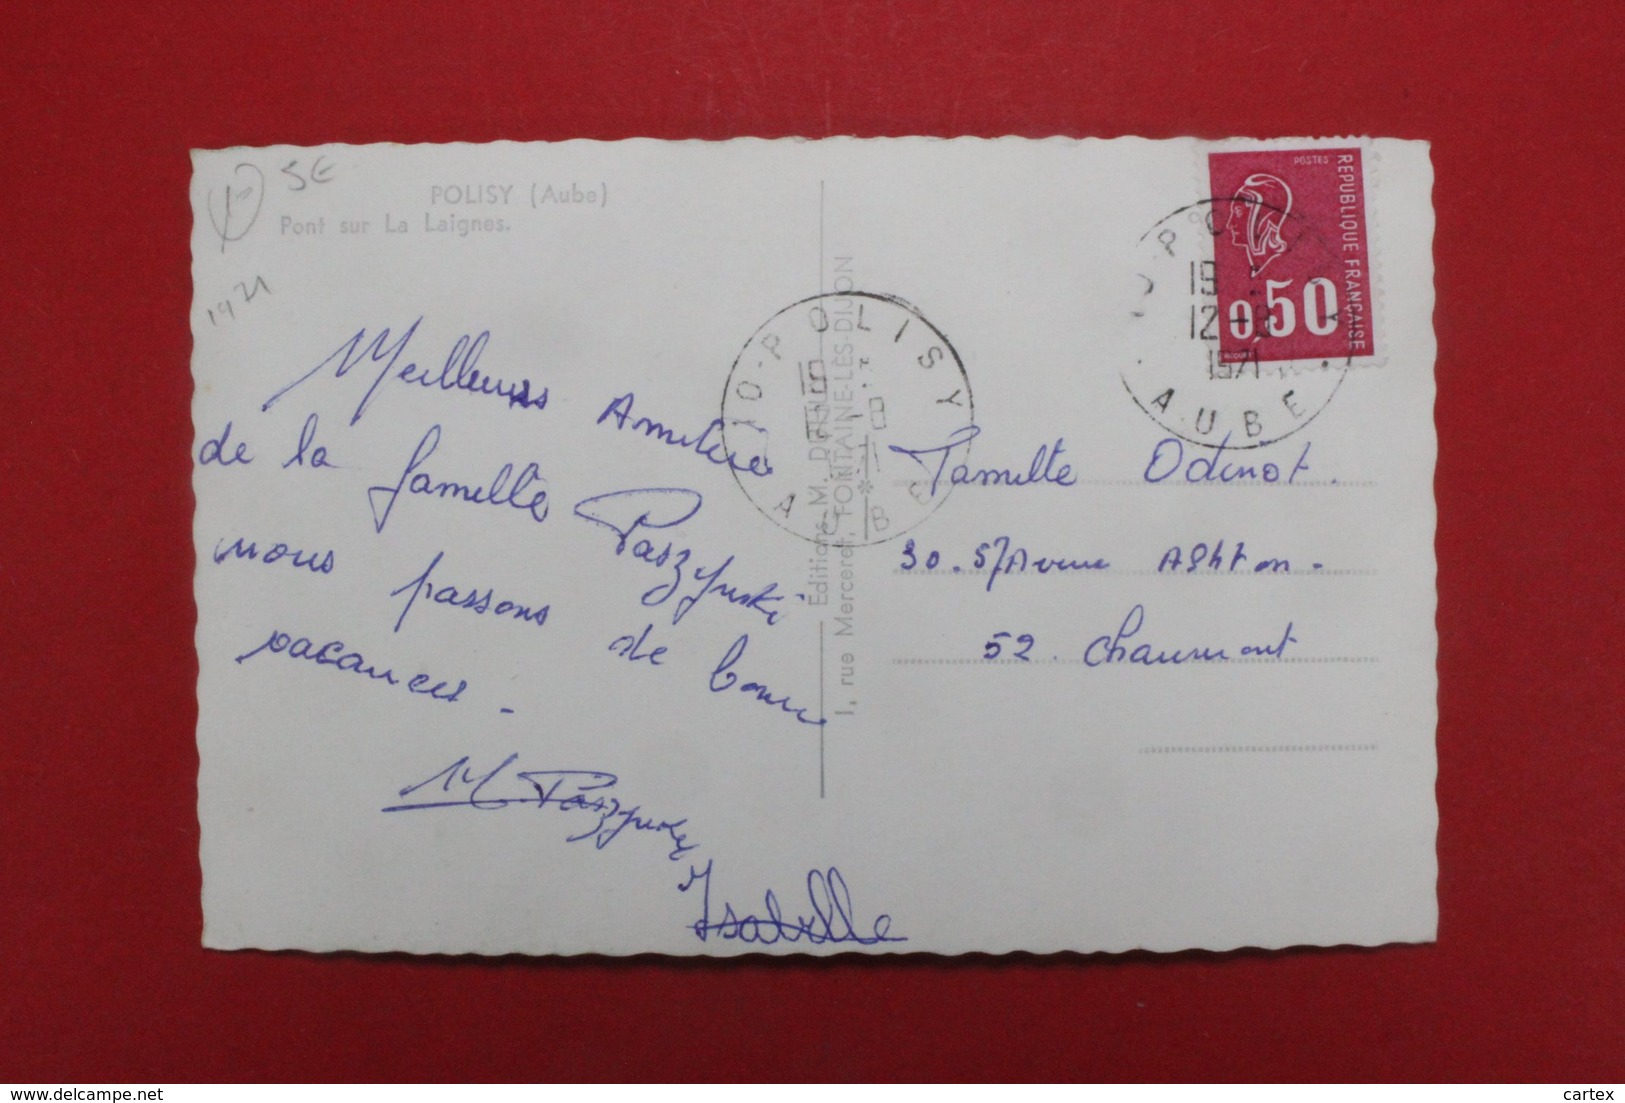 5€
1971
POLISY (Aube)
Pont sur La Laignes.
Meilleures Amitiés
de la famille Paszynski
nous passons de bonnes
vacances.
M. Paszynski
Isabelle
10-POLISY
AUBE
Editions M.
1, rue Merceret, FONTAINE-LÈS-DIJON
POSTES
REPUBLIQUE FRANÇAISE
0,50
19
12-8
1971
AUBE
Famille Odinot.
30.57 Avenue Ashton.
52. Chaumont
delcampe.net
cartex